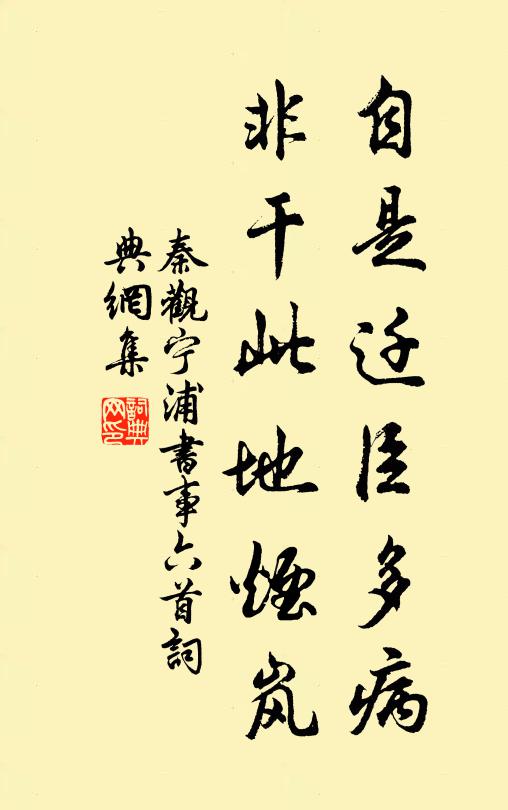 自是迁臣多病
非干此地煙岚
秦觀宁浦書事六首詞
典網集
詞典
网印